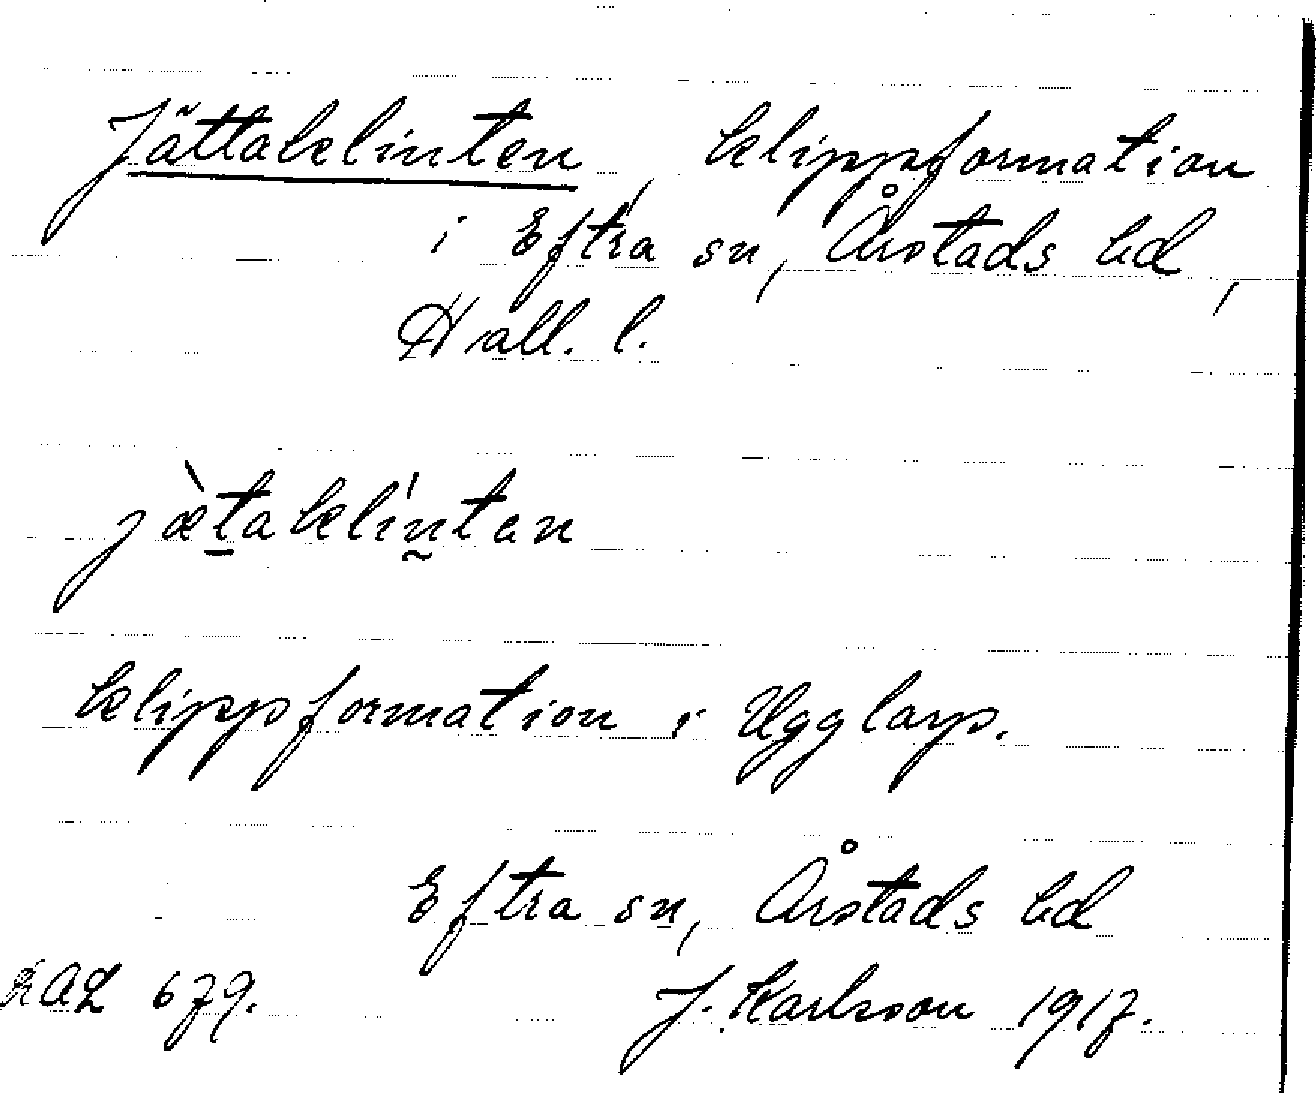 Jättaklinten, klippformation
i Eftra sn, Årstads hd,
Hall. l.
jæ̀taklíntan
klippformation i Ugglarp.
Eftra sn, Årstads hd
AL 679. J. Karlsson 1917.